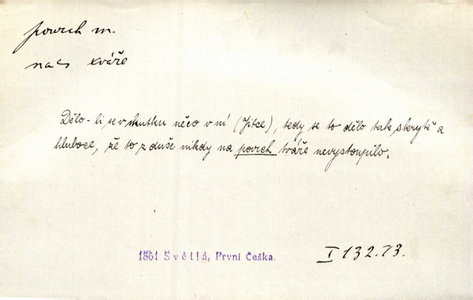 povrch m.
na tváře
Dělo-li se v skutku něco v ní (Jitce), tedy se to dělo tak skrytě a
hluboce, že to z duše nikdy na povrch tváře nevystoupilo.
1861 Světlá, První Češka.
I 132.73.